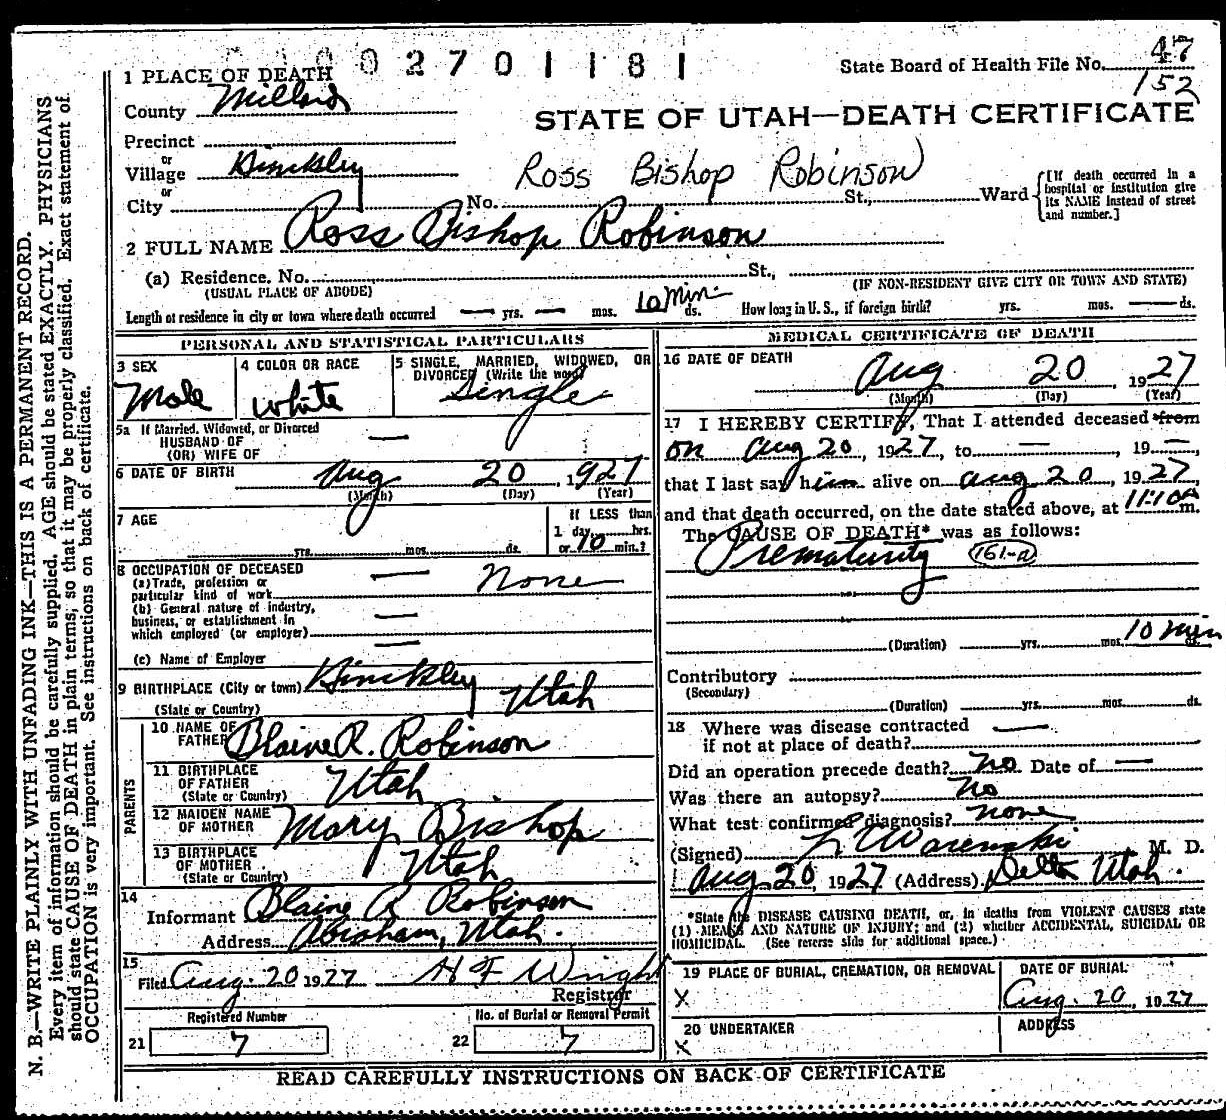 0002701181
State Board of Health File No. 47
152
1 PLACE OF DEATH
County Millard
STATE OF UTAH—DEATH CERTIFICATE
Precinct
or
Village Hinckley
Ross Bishop Robinson
or
City No. St., Ward
[If death occurred in a hospital or institution give its NAME instead of street and number.]
2 FULL NAME Ross Bishop Robinson
(a) Residence. No. St.,
(USUAL PLACE OF ABODE) (IF NON-RESIDENT GIVE CITY OR TOWN AND STATE)
Length of residence in city or town where death occurred — yrs. — mos. 10 Min. ds. How long in U. S., if foreign birth? yrs. mos. — ds.
PERSONAL AND STATISTICAL PARTICULARS
3 SEX
Male
4 COLOR OR RACE
White
5 SINGLE, MARRIED, WIDOWED, OR
DIVORCED (Write the word)
Single
5a If Married, Widowed, or Divorced
HUSBAND OF —
(OR) WIFE OF
6 DATE OF BIRTH Aug 20, 1927
(Month) (Day) (Year)
7 AGE
yrs. mos. ds.
If LESS than
1 day hrs.
or 10 min.?
8 OCCUPATION OF DECEASED
(a) Trade, profession or
particular kind of work — None
(b) General nature of industry,
business, or establishment in —
which employed (or employer)
(c) Name of Employer —
9 BIRTHPLACE (City or town) Hinckley
(State or Country) Utah
PARENTS
10 NAME OF
FATHER Blaine R. Robinson
11 BIRTHPLACE
OF FATHER
(State or Country) Utah
12 MAIDEN NAME
OF MOTHER Mary Bishop
13 BIRTHPLACE
OF MOTHER
(State or Country) Utah
14
Informant Blaine R Robinson
Address Abraham, Utah.
15
Filed Aug. 20 1927 H F Wright
Registrar
Registered Number
21 7
No. of Burial or Removal Permit
22 7
MEDICAL CERTIFICATE OF DEATH
16 DATE OF DEATH
Aug 20, 1927
(Month) (Day) (Year)
17 I HEREBY CERTIFY, That I attended deceased from
on Aug 20, 1927, to —, 19—,
that I last saw him alive on Aug 20, 1927
and that death occurred, on the date stated above, at 11:10 a m.
The CAUSE OF DEATH* was as follows:
Prematurity 161-a
(Duration) yrs. mos. 10 min ds.
Contributory
(Secondary)
(Duration) yrs. mos. ds.
18 Where was disease contracted
if not at place of death? —
Did an operation precede death? No Date of —
Was there an autopsy? No
What test confirmed diagnosis? none
(Signed) M. D.
Aug 20, 1927 (Address) Delta Utah.
*State the DISEASE CAUSING DEATH, or, in deaths from VIOLENT CAUSES state
(1) MEANS AND NATURE OF INJURY; and (2) whether ACCIDENTAL, SUICIDAL OR
HOMICIDAL. (See reverse side for additional space.)
19 PLACE OF BURIAL, CREMATION, OR REMOVAL
X
DATE OF BURIAL
Aug. 20, 1927
20 UNDERTAKER
X
ADDRESS
READ CAREFULLY INSTRUCTIONS ON BACK OF CERTIFICATE
N. B.—WRITE PLAINLY WITH UNFADING INK—THIS IS A PERMANENT RECORD.
Every item of information should be carefully supplied. AGE should be stated EXACTLY. PHYSICIANS
should state CAUSE OF DEATH in plain terms, so that it may be properly classified. Exact statement of
OCCUPATION is very important. See instructions on back of certificate.